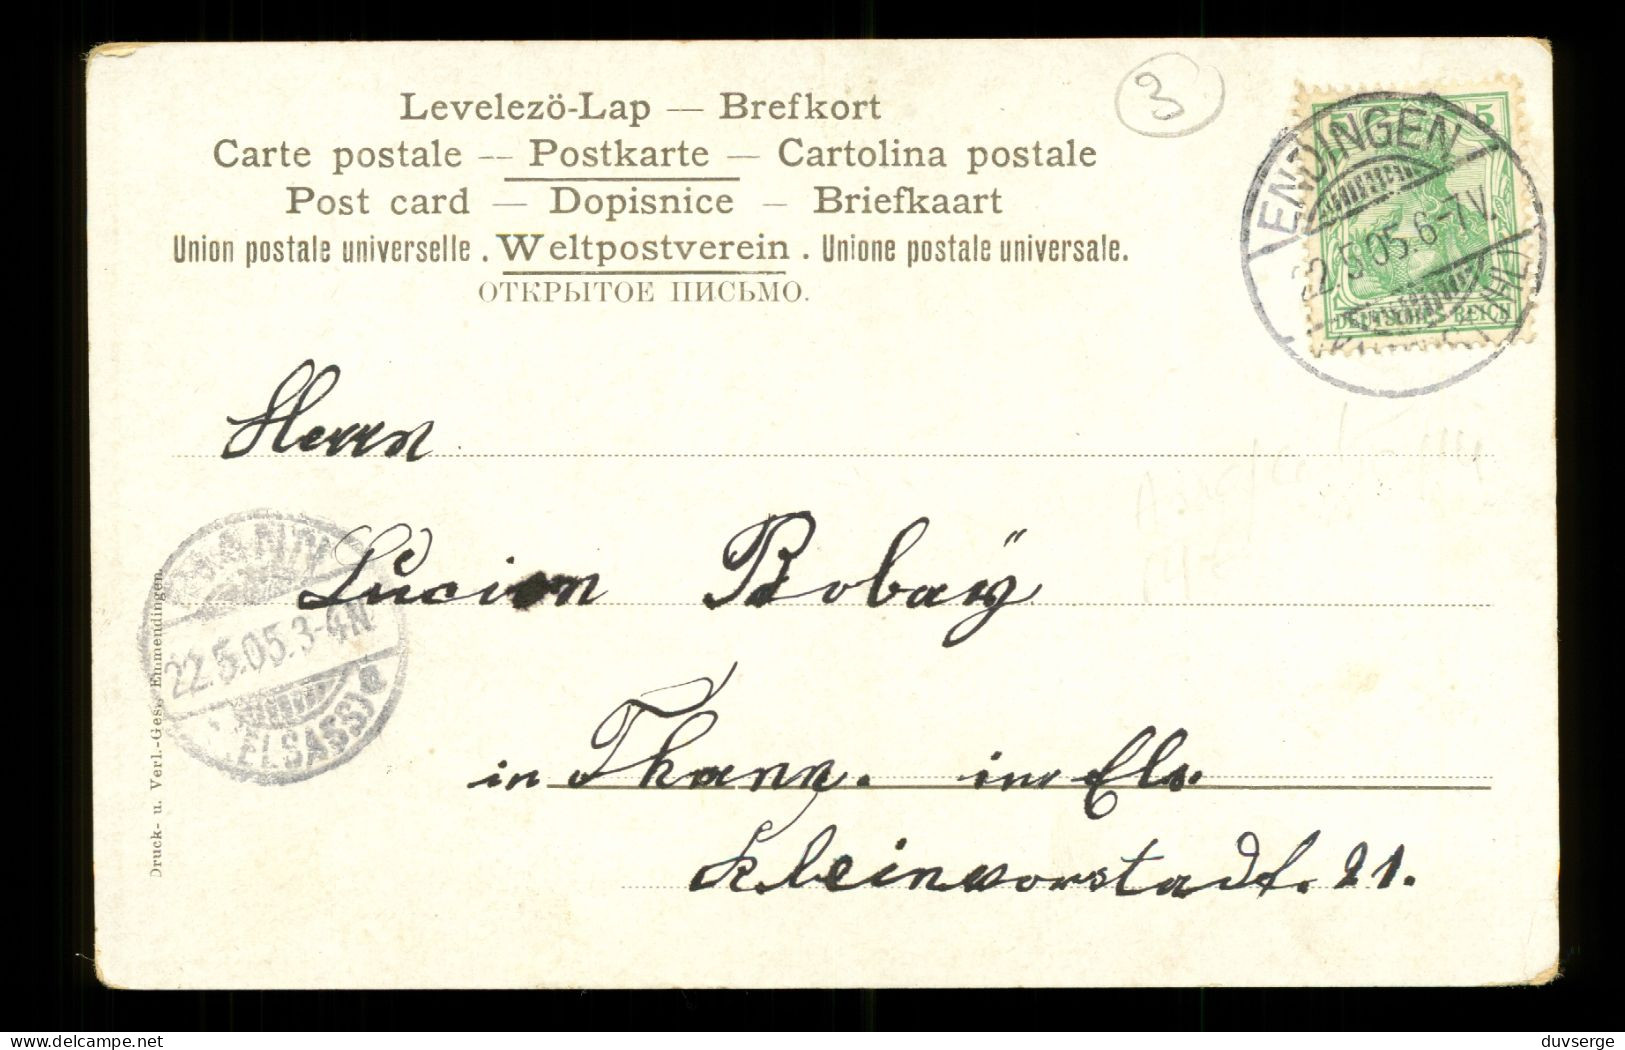 Levelezö-Lap — Brefkort
Carte postale — Postkarte — Cartolina postale
Post card — Dopisnice — Briefkaart
Union postale universelle . Weltpostverein . Unione postale universale.
ОТКРЫТОЕ ПИСЬМО.
3
5 5
DEUTSCHES REICH
ENDINGEN
22.5.05.6-7V.
Herrn
Lucien Bobaÿ
in Thann. im Els.
Kleinvorstadt. 21.
THANN
22.5.05.3-4N
(ELSASS) a
Druck- u. Verl.-Ges. Emmendingen.
delcampe.net
duvserge